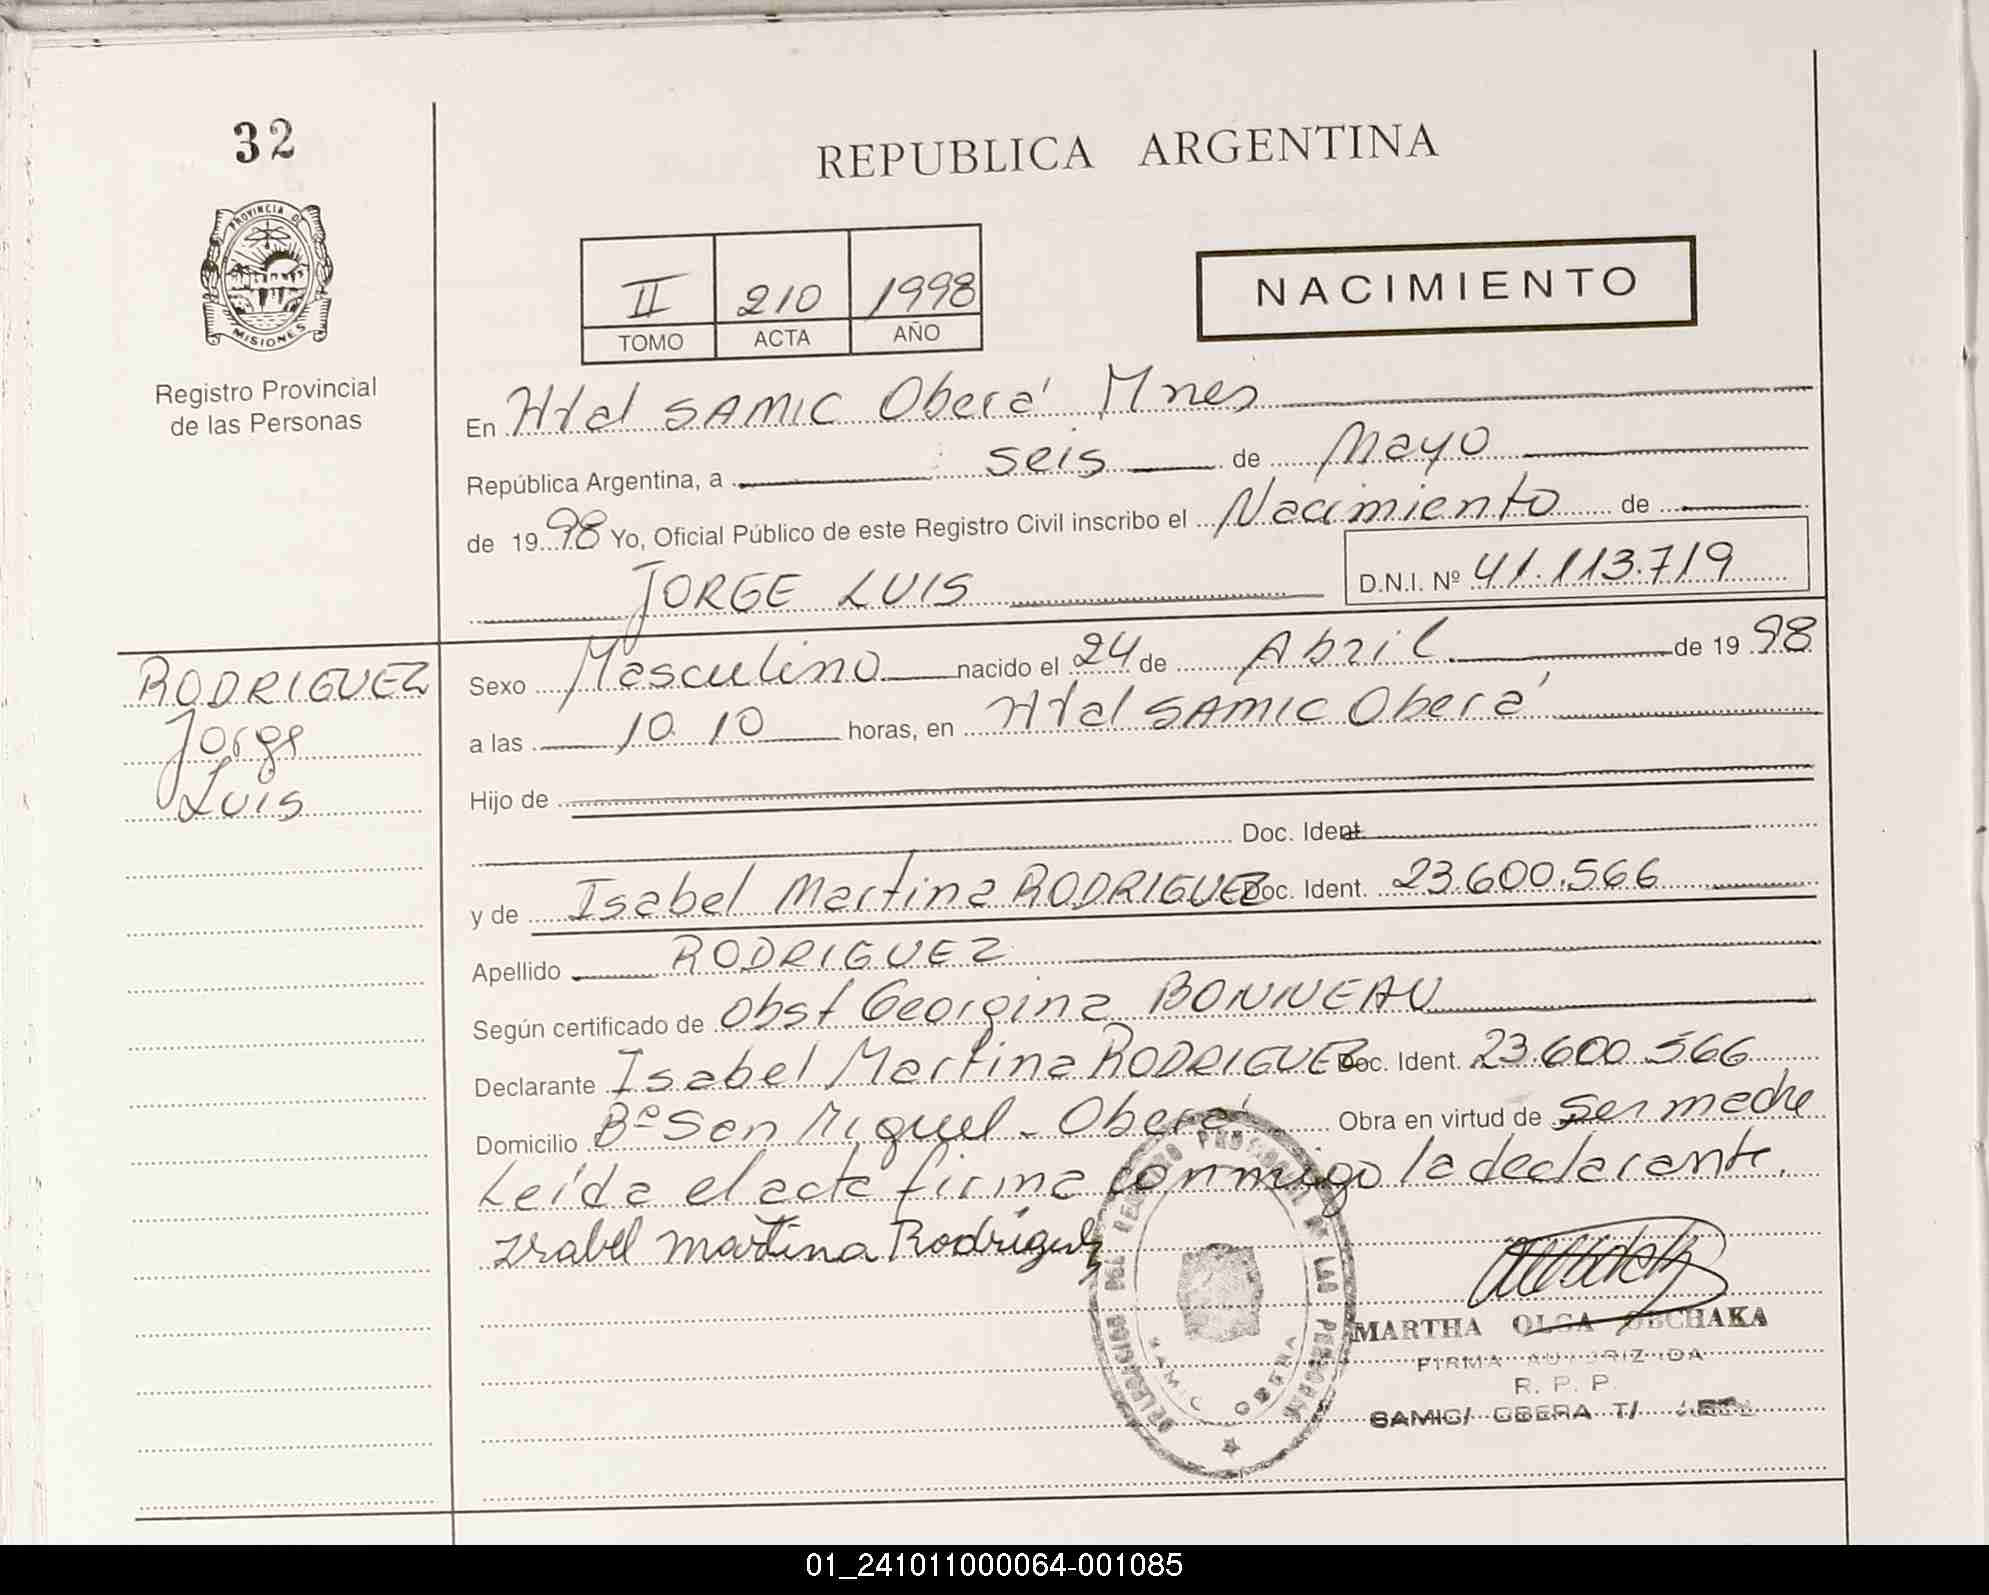 32
PROVINCIA DE
MISIONES
Registro Provincial
de las Personas
REPUBLICA ARGENTINA
II 210 1998
TOMO ACTA AÑO
NACIMIENTO
En Htal SAMIC Oberá Mnes
República Argentina, a seis de Mayo
de 1998 Yo, Oficial Público de este Registro Civil inscribo el Nacimiento de
JORGE LUIS D.N.I. Nº 41.113.719
RODRIGUEZ
Jorge
Luis
Sexo Masculino nacido el 24 de Abril de 1998
a las 10 10 horas, en Htal SAMIC Oberá
Hijo de
Doc. Ident.
y de Isabel Martina RODRIGUEZ Doc. Ident. 23.600.566
Apellido RODRIGUEZ
Según certificado de Obst Georgina BONNEAU
Declarante Isabel Martina RODRIGUEZ Doc. Ident. 23.600.566
Domicilio Bº San Miguel - Oberá Obra en virtud de ser madre
Leída el acta firma conmigo la declarante.
Isabel Martina Rodríguez
DELEGACION DEL REGISTRO PROVINCIAL DE LAS PERSONAS
SAMIC OBERA
MARTHA OLGA OBCHAKA
FIRMA AUTORIZADA
R. P. P.
SAMIC/ OBERA T/
01_241011000064-001085